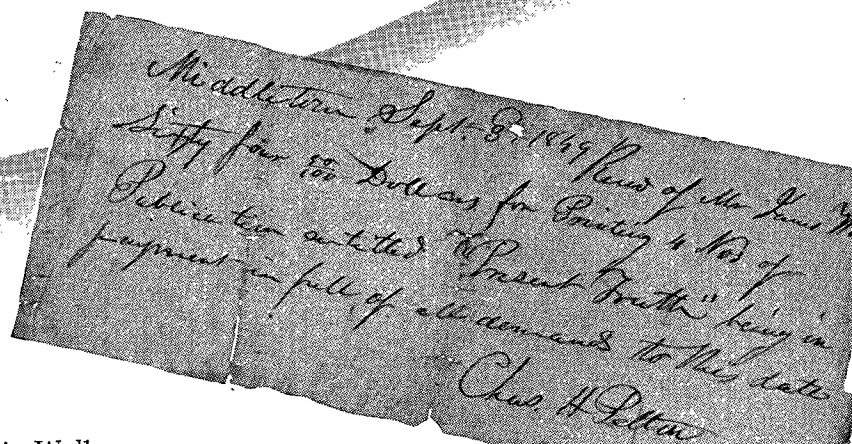 Middletown Sept. 3, 1849 Recd of Mr James
Sixty four 50/100 Dollars for Printing 4 Nos of
Publication entitled "Present Truth" being in
payment in full of all demands to this date
Chas. H Pelton